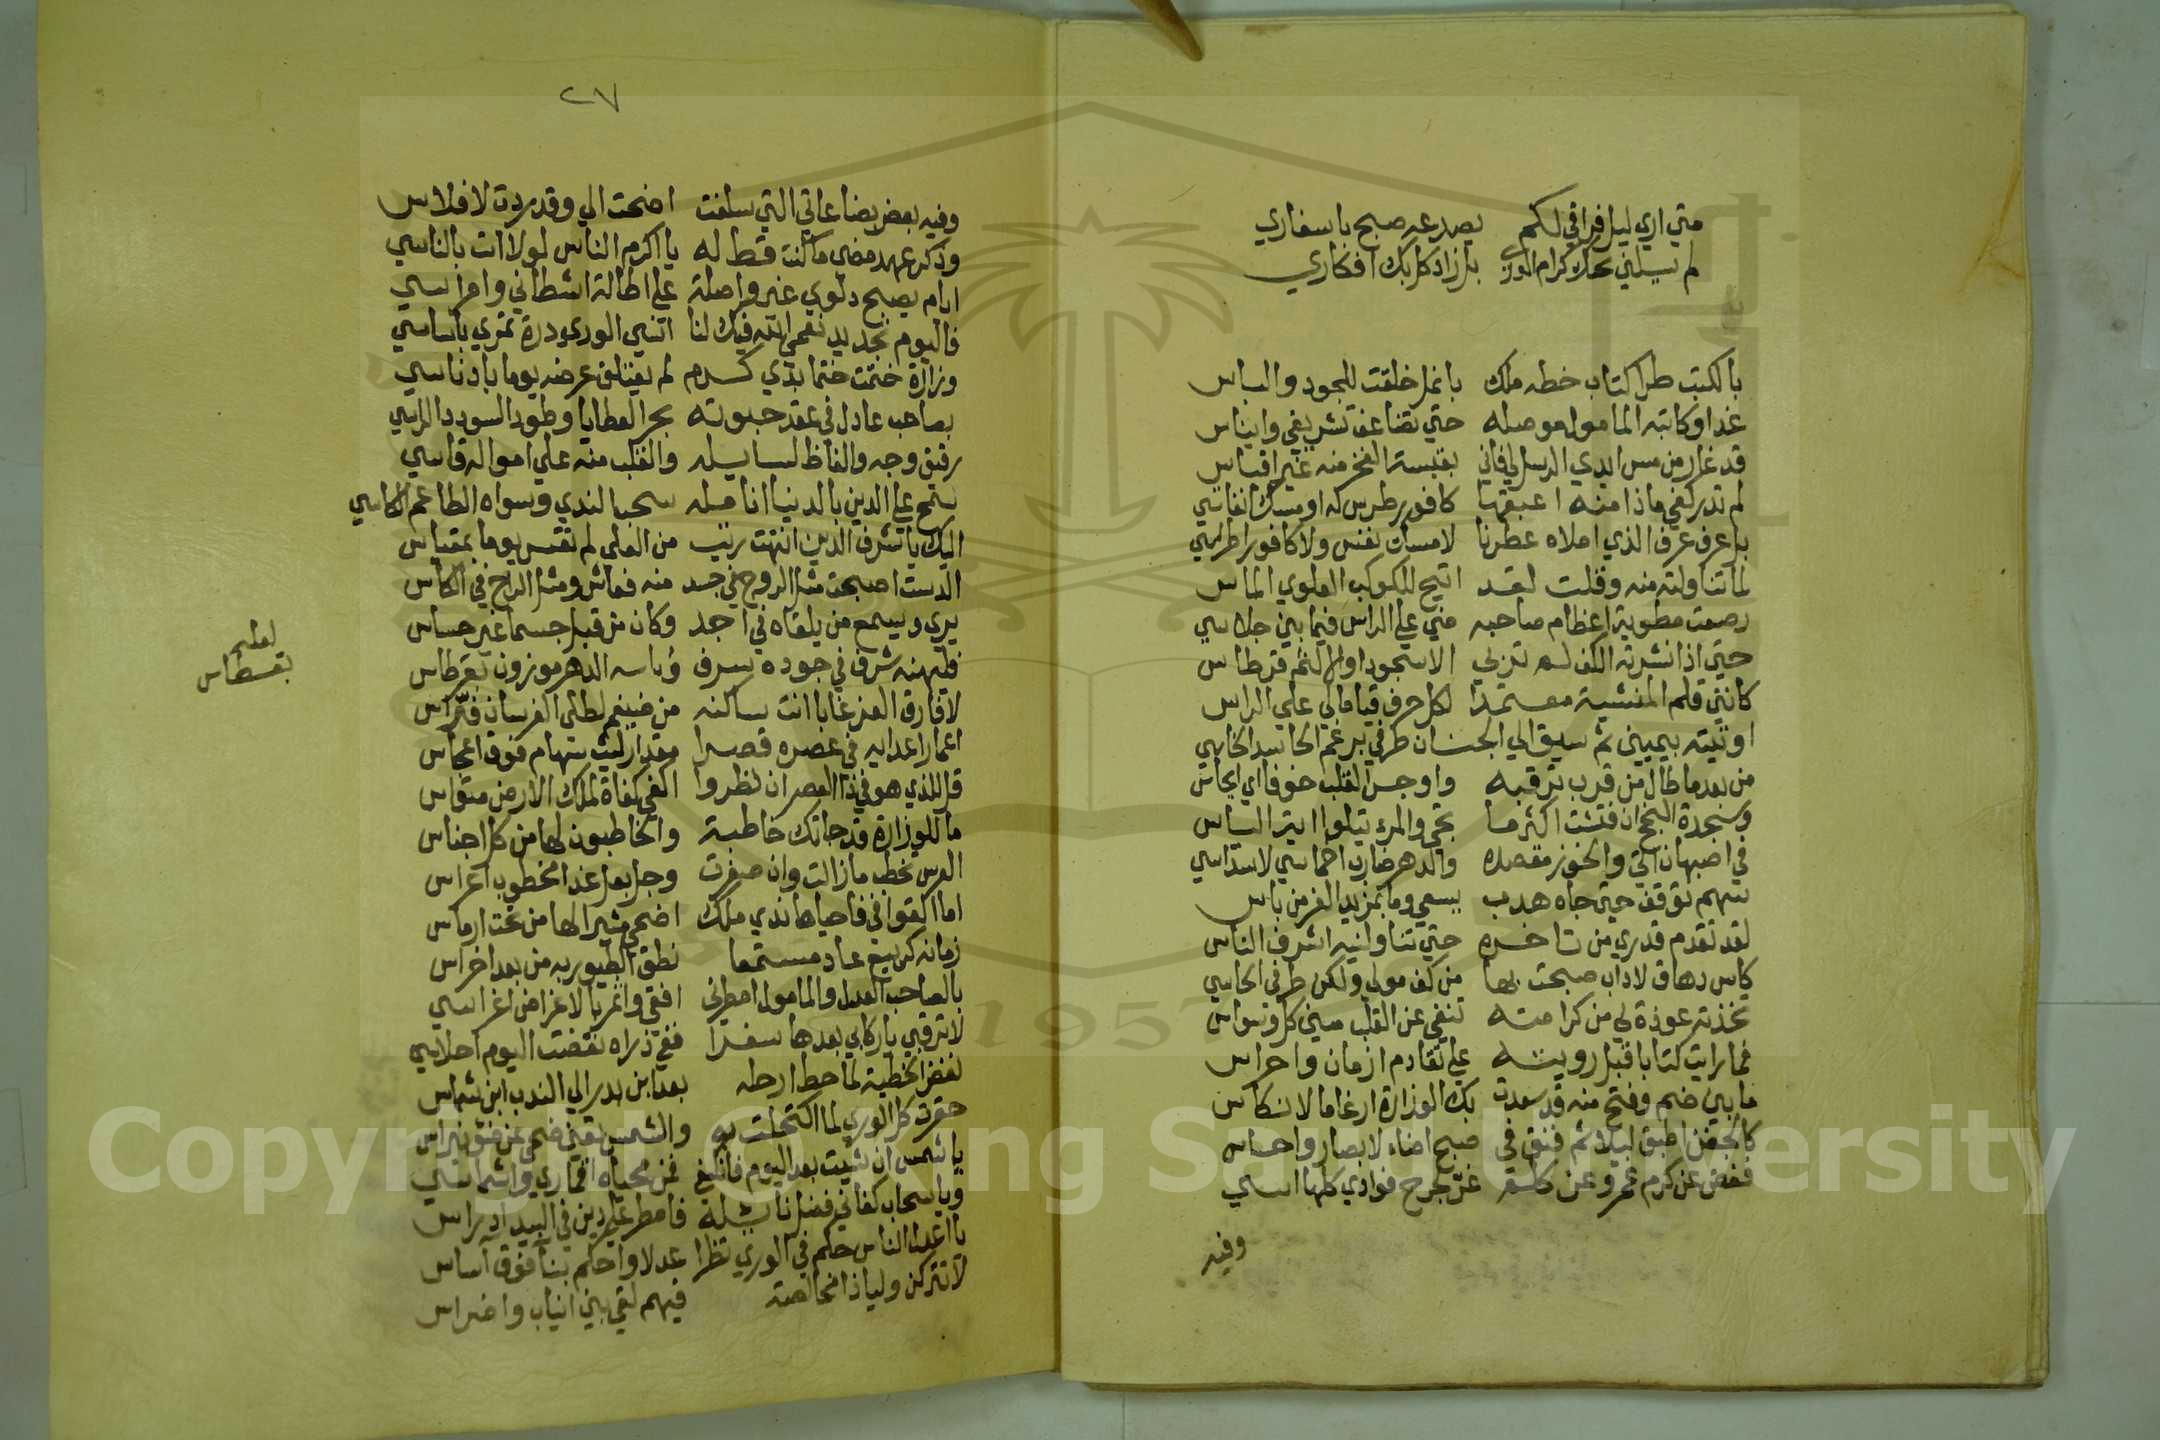 متي اري ليل فراقي لكم يصدعه صبح باسفاري
لم يسلني عنك كرام الوري بل زاد كل بك افكاري
بالكتب طرا كتاب خطه ملك بانمل خلقت للجود والباس
غدا وكاتبه المامول موصله حتي تضاعف تشريفي وايناس
قد غار من مس ايدي الرسل لي فاني بقبسة الفخر منه غير اقباس
لم تدر كفي ماذا منه اعبقها كافور طرس له او مسك انفاس
بل عرف عرف الذي املاه عطرنا لا مسك نفس ولا كافور اطراسي
لما تناولته منه وقلت لقد اتيح للكوكب العلوي الماس
رصعت مطوية اعظام صاحبه مني علي الراس فيما بين جلاسي
حتي اذا نشرته الكف لم ترني الا سجودا ولا لثم قرطاس
كانني قلم المنشية معتمدا لكل حرف قيامالي علي الراس
اوتيته بيميني ثم سيق الي الجنان طرفي برغم الحاسد الخاسي
من بعد ما طال من قرب ترقبه واوجس القلب خوفا اي ايجاس
ونجدة النجح ان فتشت اكثرها بحي والمرء يتلوا اية الباس
في اصبهان اتي والخوز مقصده والدهر ضارب اخماسي لاسداسي
سهم توقف حتي جاه هدب يسعي وما بمزيد الغر من باس
لقد تقدم قدري من تاخره حتي تناولنيه اشرف الناس
كاس دهاق لاداب صبحت بها من كف مولي ولكن طرفي الحاسي
تخذته عوذة لي من كرامته تنفي عن القلب مني كل وسواس
فما رايت كتابا قبل رويته علي تقادم ازمان واحراس
ما بين ضم وفتح منه قد سعدت بك الوزارة ارغاما لانكاس
كالجفن اطبق ليلا ثم فتق في صبح اضاء لابصار واحساس
ففض عن كرم عمرو عن كلفه عن جرح فوادي كلها اسي
وفيه
٢٧
وفيه بعض بضاعاتي التي سلفت اضحت الي وقد ردت لافلاس
وذكر عهد مضي ما كنت قط له يا اكرم الناس لولا انت بالناسي
ايام يصبح دلوي غير واصلة علي اطالة اشطاني وامراسي
فاليوم تجديد نعمي الله فيك لنا اتني الوري درة تمري بابساسي
وزارة ختمت ختما بذي كرم لم يعتلق عرضه يوما بادناسي
بصاحب عادل في عقد حبوته بحر العطايا وطود السودد الراسي
رقيق وجه والفاظ لسايله والقلب منه علي امواله قاسي
سمح علي الدين بالدنيا انامله سحب الندي وسواه الطاعم الكاسي
اليك يا شرف الدين انتهت رتب من العلي لم تقس يوما بمقياس
الدست اصبحت مثل الروح في جسد منه فعاش ومثل الراح في الكاس
يري ويسمع من يلقاه في احد وكان من قبل جسما غير حساس
فلله منه شرف في جوده سرف وباسه الدهر موزون بقرطاس
لعله بقسطاس
لا فارق العز غابا انت ساكنه من ضيغم لطلي الفرسان فراس
اعمار اعدايه في عصره قصرا مقدار لبث سهام فوق اعجاس
قل للذي هو في ذا العصر ان نظروا الفي كفاة لملك الارض متقاس
ما للوزارة قد جاتك خاطبة والخاطبون لها من كل اجناس
العرس تخطب ما زالت وان صغرت وجل بعل غدا مخطوب اعراس
اما القوافي فاحياها ندي ملك اضحي مشيرا لها من تحت ارماس
زمانه كربيع عاد مستمعا نطق الطيور به من بعد اخراس
بالصاحب العدل والمامول امطرني افقي واثمر بالاغراض اغراسي
لا ترقبي يا ركابي بعدها سفرا ففي ذراه نفضت اليوم احلاسي
نفض الخطية لما حط ارحله بعد ابن بدر الي الندب ابن شماس
حقرت كل الوري لما اكتحلت به والشمس تغني ضحي عن ضوء نبراس
يا شمس ان شيت بعد اليوم فانكسفي فمن محياه اقماري واشماسي
ويا سحاب كفاني فضل نايله فامطر علي دين في البيد ادراس
يا اعدل الناس حكم في الوري نظرا عدلا واحكم بناء فوق اساس
لا تتركن وليا ذا مخالصة فيهم لقي بين انياب واضراس